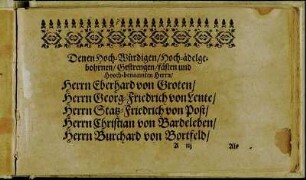 Denen Hoch-Würdigen/Hoch-ädelge-
bohrnen/Gestrengen/fästen und
Hooch-benannten Herrn/
Herrn Eberhard von Groten/
Herrn Georg-Friedrich von Lente/
Herrn Statz-Friedrich von Post/
Herrn Christian von Bardeleben/
Herrn Burchard von Bortfeld/
A iij Als